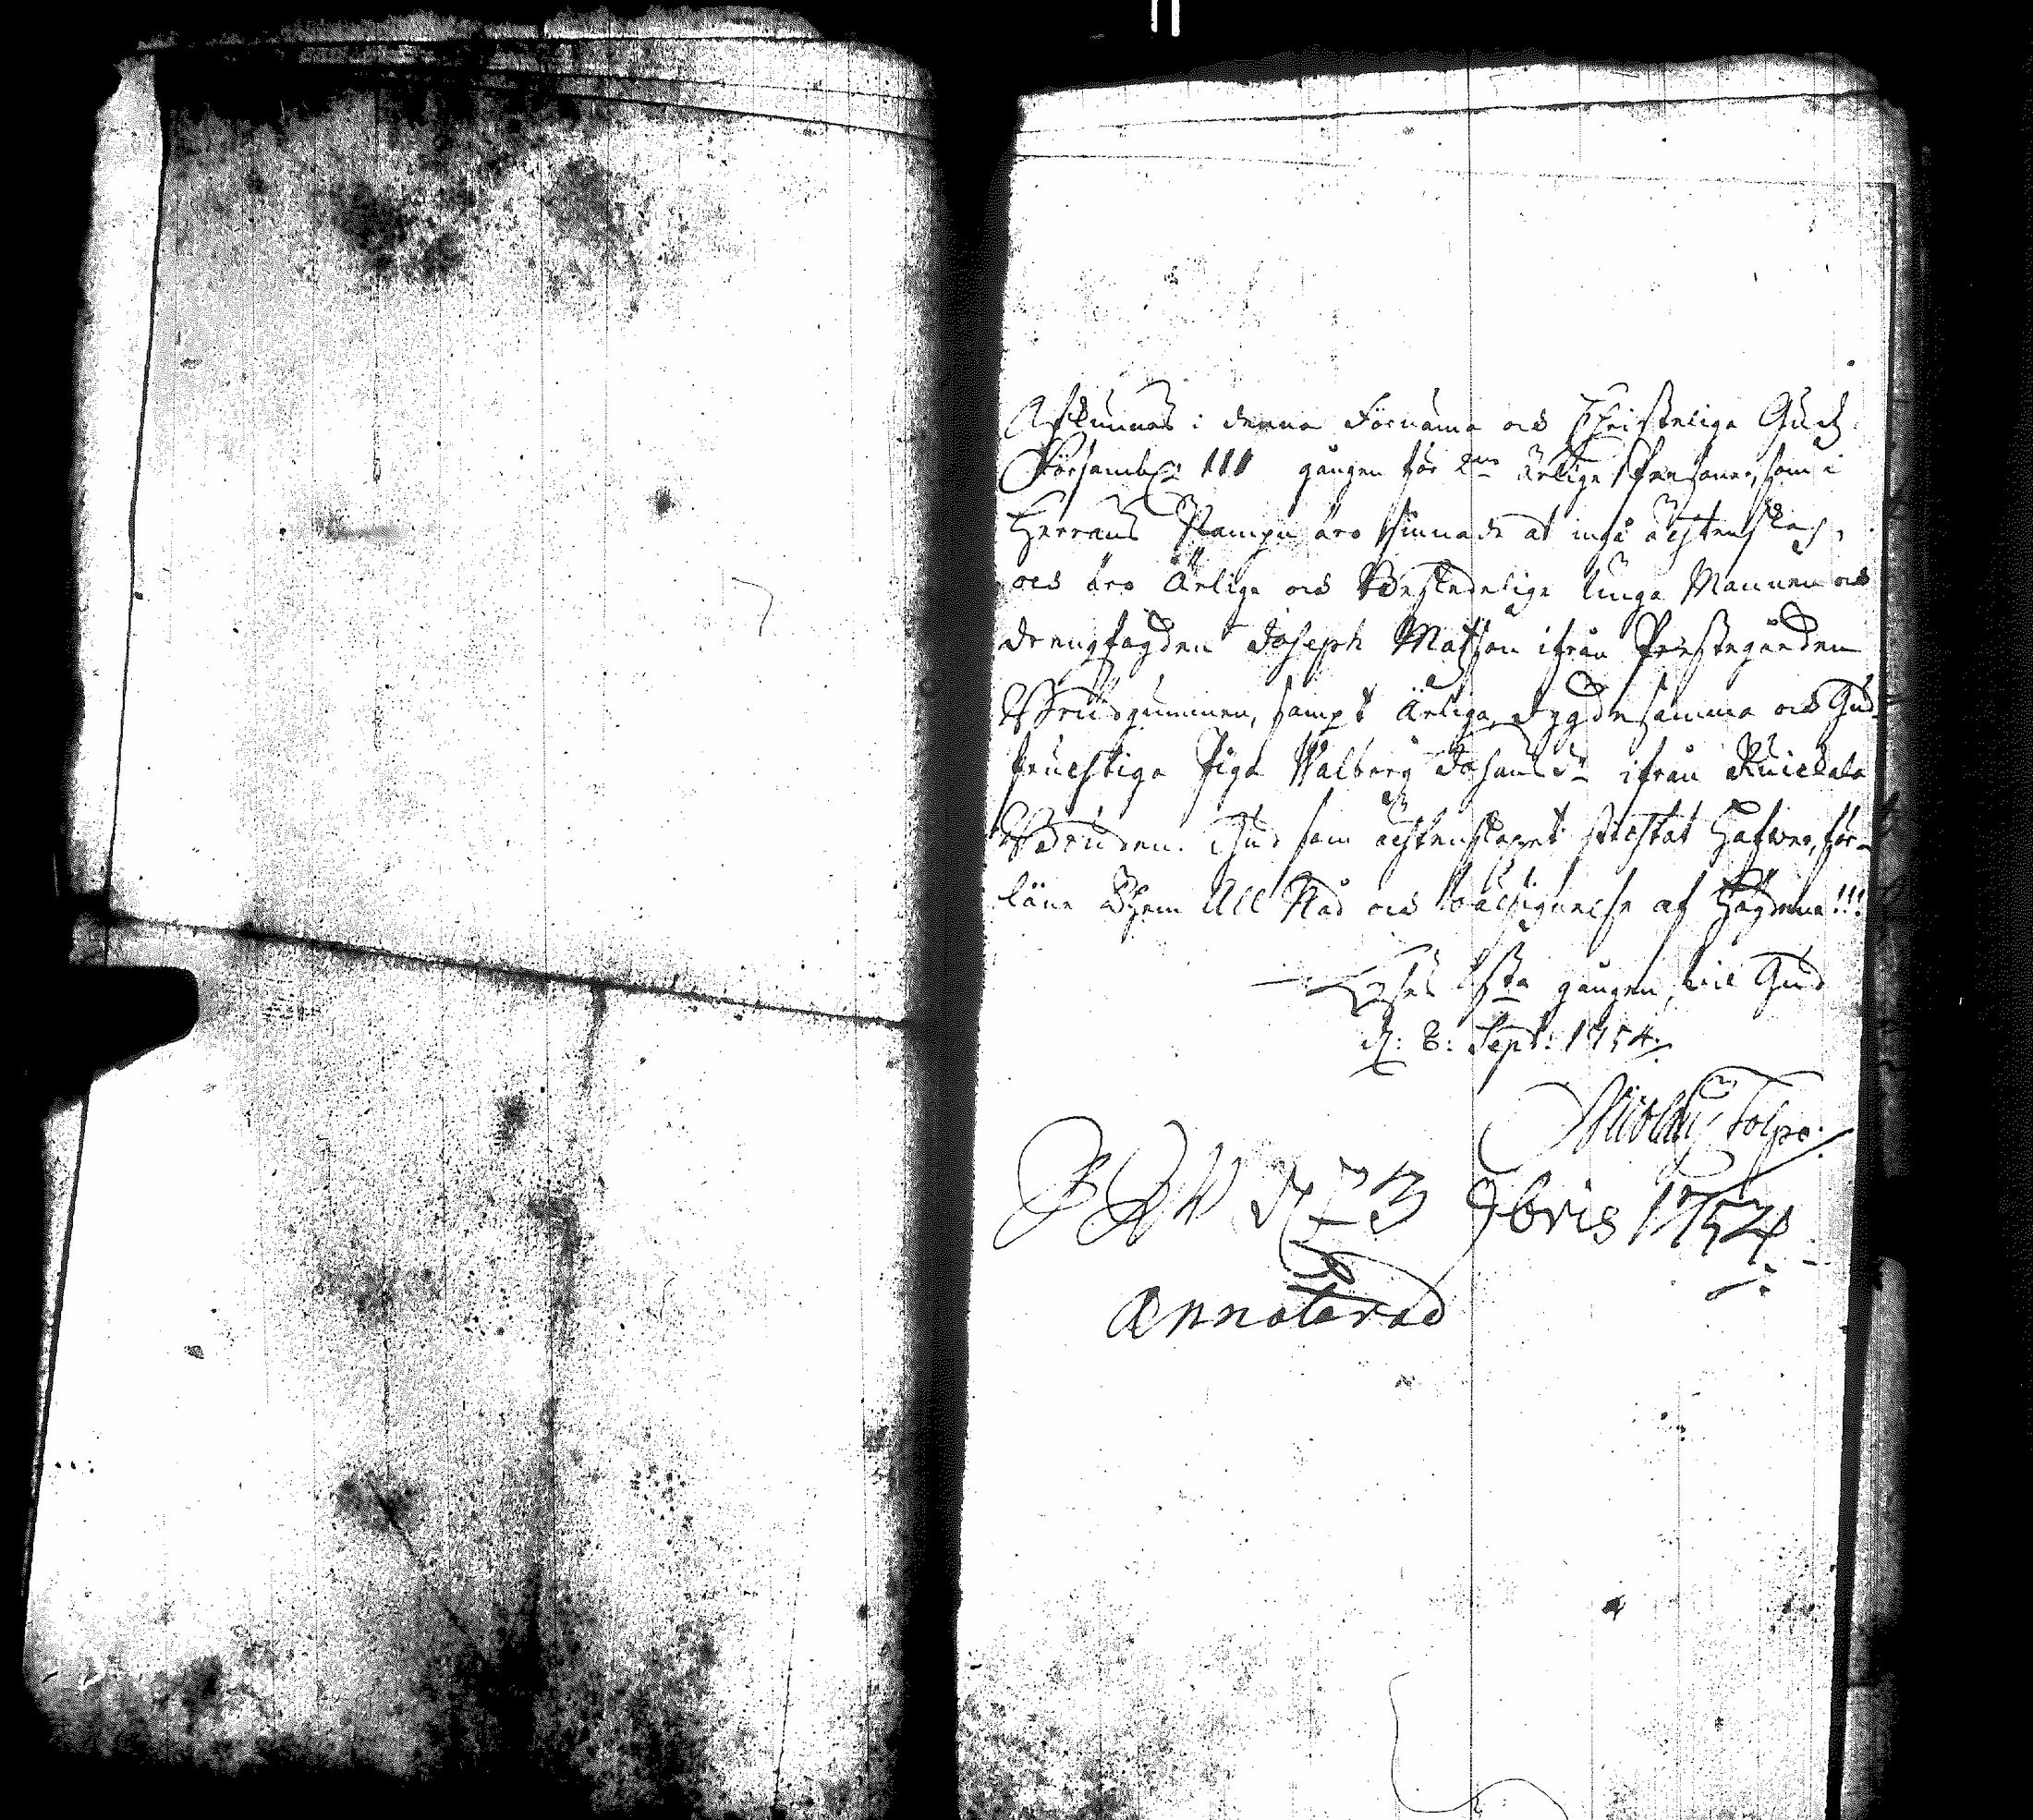 Afkunnas i denna Förnäma och Christeliga Gudz
Församl: III gången för 2ne ärlige Personer, som i
Herrans Nampn äro sinnade at ingå ächtenskap,
och äro Ärlige och Beskedelige Unga Mannen och
drengfogden Joseph Matsson ifrån Prestegården
Brudgummen, sampt Ärliga, dygdesamma och Gud-
fruchtiga Pigan Walborg Johansd:r ifrån Kuickala
Bruden. Gud som ächtenskapet stichtat Hafwer, för-
läne Them All Nåd och Wälsignelse af Högdene!!!
Lyses 1sta gången, will Gud
d: 8: Sept: 1754.
Nicolaus Tolpo.
d 3 9bris 1754
Annoterad